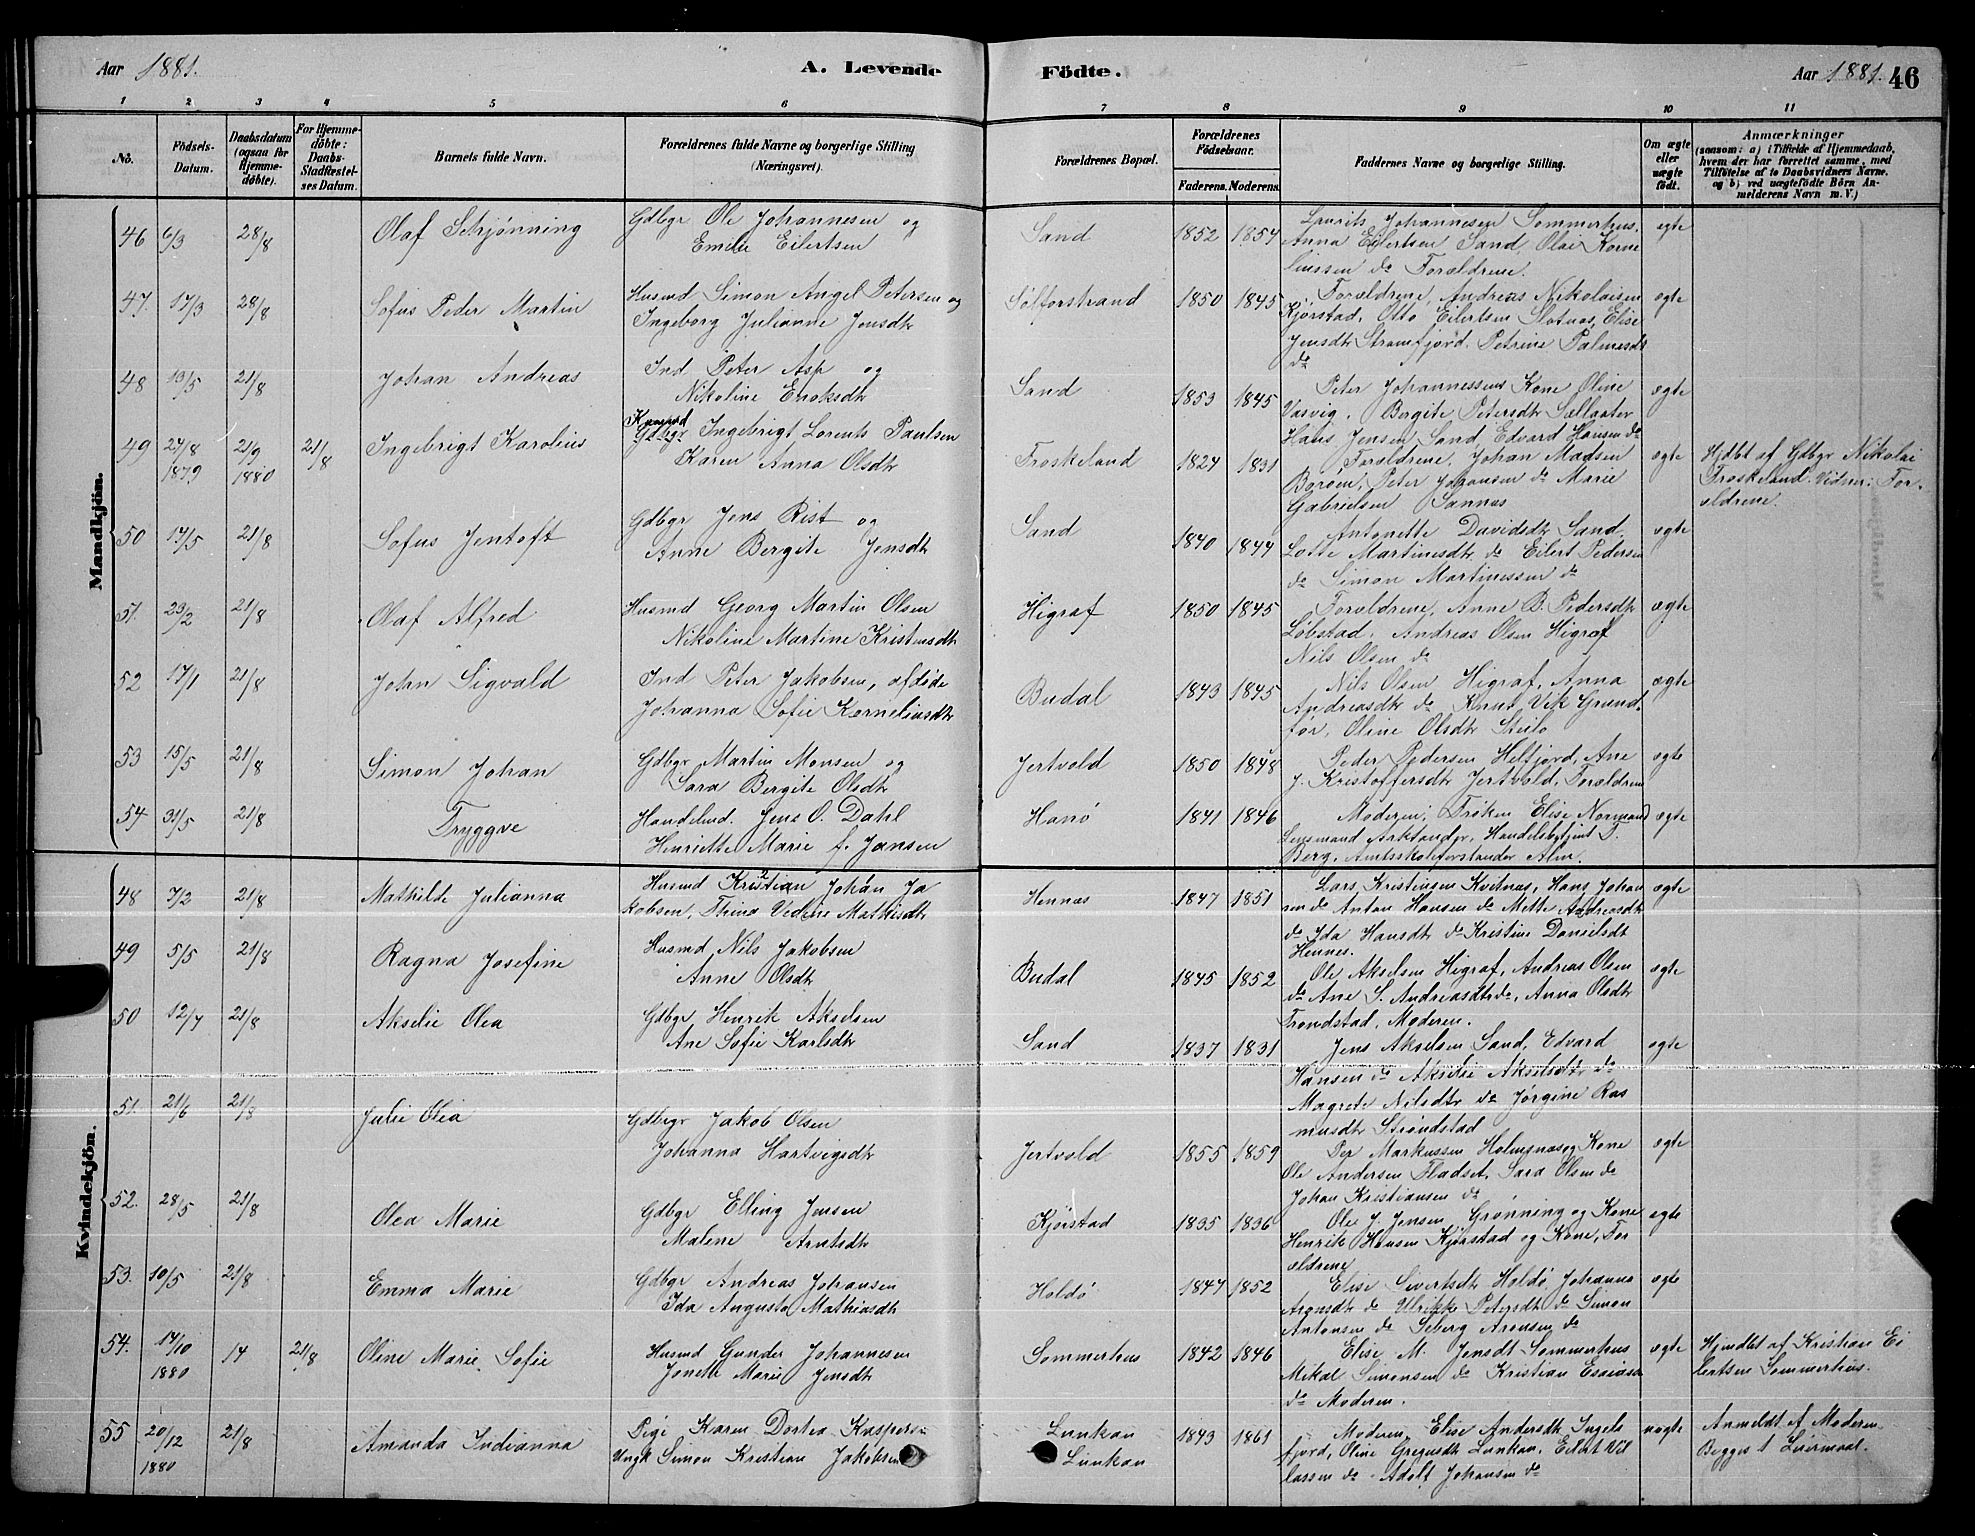 Aar 1881. A. Levende Födte. Aar 1881. 46
1 2 3 4 5 6 7 8 9 10 11
No. Födsels-Datum. Daabsdatum (ogsaa for Hjemme-döbte). For Hjemme-döbte: Daabs-Stadfæstelses Datum. Barnets fulde Navn. Forældrenes fulde Navne og borgerlige Stilling (Næringsvei). Forældrenes Bopæl. Forældrenes Födselsaar. Faderens. Moderens. Faddernes Navne og borgerlige Stilling. Om ægte eller uægte födt. Anmærkninger (saasom: a) i Tilfælde af Hjemmedaab, hvem der har forrettet samme, med Tilföielse af to Daabsvidners Navne. og b) ved uægtefödte Börn Anmelderens Navn m. V.)
Mandkjön.
46 6/3 28/8 Olaf Schjønning Gdbgr Ole Johannesen og Sand 1852 1854 Laurits Johannesen Sommerhus, egte
Emilie Eilertsen Anna Eilertsen Sand, Olai Korne
liussen do Forældrene.
47. 17/3 28/8 Sofus Peder Martin Husmd Simon Angel Petersen og Sølforstrand 1850 1845 Forældrene, Andreas Nikolaisen egte
Ingeborg Julianne Jensdtr Kjørstad, Otto Eilertsen Slotnæs, Elise
Jensdtr Strømfjord. Petrine Palmesdtr
do
48 13/5 21/8 Johan Andreas Ind Peter Asp og Sand 1853 1845 Peter Johannessens Kone Oline ægte
Nikoline Enoksdtr Vasvig, Bergite Petersdtr
Hans Jensen Sand, Edvard Hansen do
49 24/8 1879 21/9 1880 21/8 Ingebrigt Karolius Gdbgr Ingebrigt Lorents Paulsen Froskeland 1824 1831 Forældrene, Johan Madsen ægte Hjdbt af Gdbgr Nikolai
Karen Anna Olsdtr Borøen, Peter Johansen do Marie Froskeland. Vidner: For
Gabrielsen Sannæs ældrene.
50 17/5 21/8 Sofus Jentoft Gdbgr Jens Rist og Sand 1840 1844 Antonette Davidsdtr Sand, ægte
Anne Bergite Jensdtr Lotte Martinesdtr do Eilert Pedersen
do Simon Martinessen do
51. 23/2 21/8 Olaf Alfred Husmd Georg Martin Olsen Higraf 1850 1845 Forældrene, Anne B. Pedersdtr ægte
Nikoline Martine Kristensdtr Løbstad, Andreas Olsen Higraf
Nils Olsen do
52 17/1 21/8 John Sigvald Ind Peter Jakobsen, afdøde Budal 1843 1845 Nils Olsen Higraf, Anna ægte
Johanna Sofie Korneliusdtr Andreasdtr do Knut Vik Grund
før, Oline Olsdtr Steilo
53 15/5 21/8 Simon Johan Gdbgr Martin Monsen og Jertvold 1850 1848 Peder Pedersen Helfjord, Ane egte
Sara Bergite Olsdtr J. Kristoffersdtr Jertvold, Forældrene
54 31/5 21/8 Tryggve Handelsmd. Jens O. Dahl Hanø 1841 1846 Moderen, Frøken Elise Normand ægte
Henriette Marie f. Jansen Lensmand Arktander, Handelsbetjent T.
Berg, Amtsskoleforstander Alm.
Kvindekjön.
48 7/2 21/8 Mathilde Julianna Husmd Kristian Johan Ja Hennæs 1847 1851 Lars Kristensen Kvitnæs, Hans Johan ægte
kobsen, Thina Vedine Mathisdtr sen do Anton Hansen do Mette Andreasdtr
do Ida Hansdtr do Kristine Danielsdt
Hennes.
49 5/5 21/8 Ragna Josefine Husmd Nils Jakobsen Budal 1845 1852 Ole Akselsen Higraf, Andreas Olsen ægte
Anne Olsdtr do Ane S. Andreasdtr do, Anna Olsdtr
Frondstad, Moderen.
50 12/7 21/8 Akselie Olea Gdbgr Henrik Akselsen Sand 1837 1831 Jens Akselsen Sand, Edvard egte
Ane Sofie Karlsdtr Hansen do Akselie Akselsdtr do
Magrete Nilsdtr do Jørgine Ras
musdtr Strøndstad
51. 21/6 21/8 Julie Olea Gdbrgr Jakob Olsen Jertvold 1855 1859 Per Markussen Holmsnæs og Kone ægte
Johanna Hartvigsdtr Ole Andersen Fladset, Sara Olsen do
Johan Kristiansen do
52. 28/5 21/8 Olea Marie Gdbgr Elling Jensen Kjørstad 1835 1836 Ole J. Jensen Grønning og Kone egte
Malene Arntsdtr Henrik Hansen Kjørstad og Kone, For
ældrene
53. 10/5 21/8 Emma Marie Gdbgr Andreas Johansen Holdø 1847 1852 Elise Sivertsdtr Holdø Johanna ægte
Ida Augusta Mathiasdtr Aronsdtr do Ulrikke Petersdtr do Simon
Antonsen do Seberg Aronsen do
54. 17/10 1880 14 21/8 Oline Marie Sofie Husmd Gunder Johannesen Sommerhus 1842 1846 Elise M. Jensdt Sommerhus ægte Hjmdbt af Kristian Ei
Jonette Marie Jensdtr Mikal Simonsen do Kristian Esaiasen lertsen Sommerhus.
do Moderen.
55 20/12 1880 21/8 Amanda Indianna Pige Karen Dortea Kaspers Lunkan 1843 1861 Moderen, Elise Andersdtr Ingels uægte Anmeldt af Moderen
Ungk Simon Kristian Jakobsen Lunkan fjord, Oline Gregusdtr Lunkan, Eilert Vil Begges 1 Leiermaal.
lassen do Adolf Johansen do